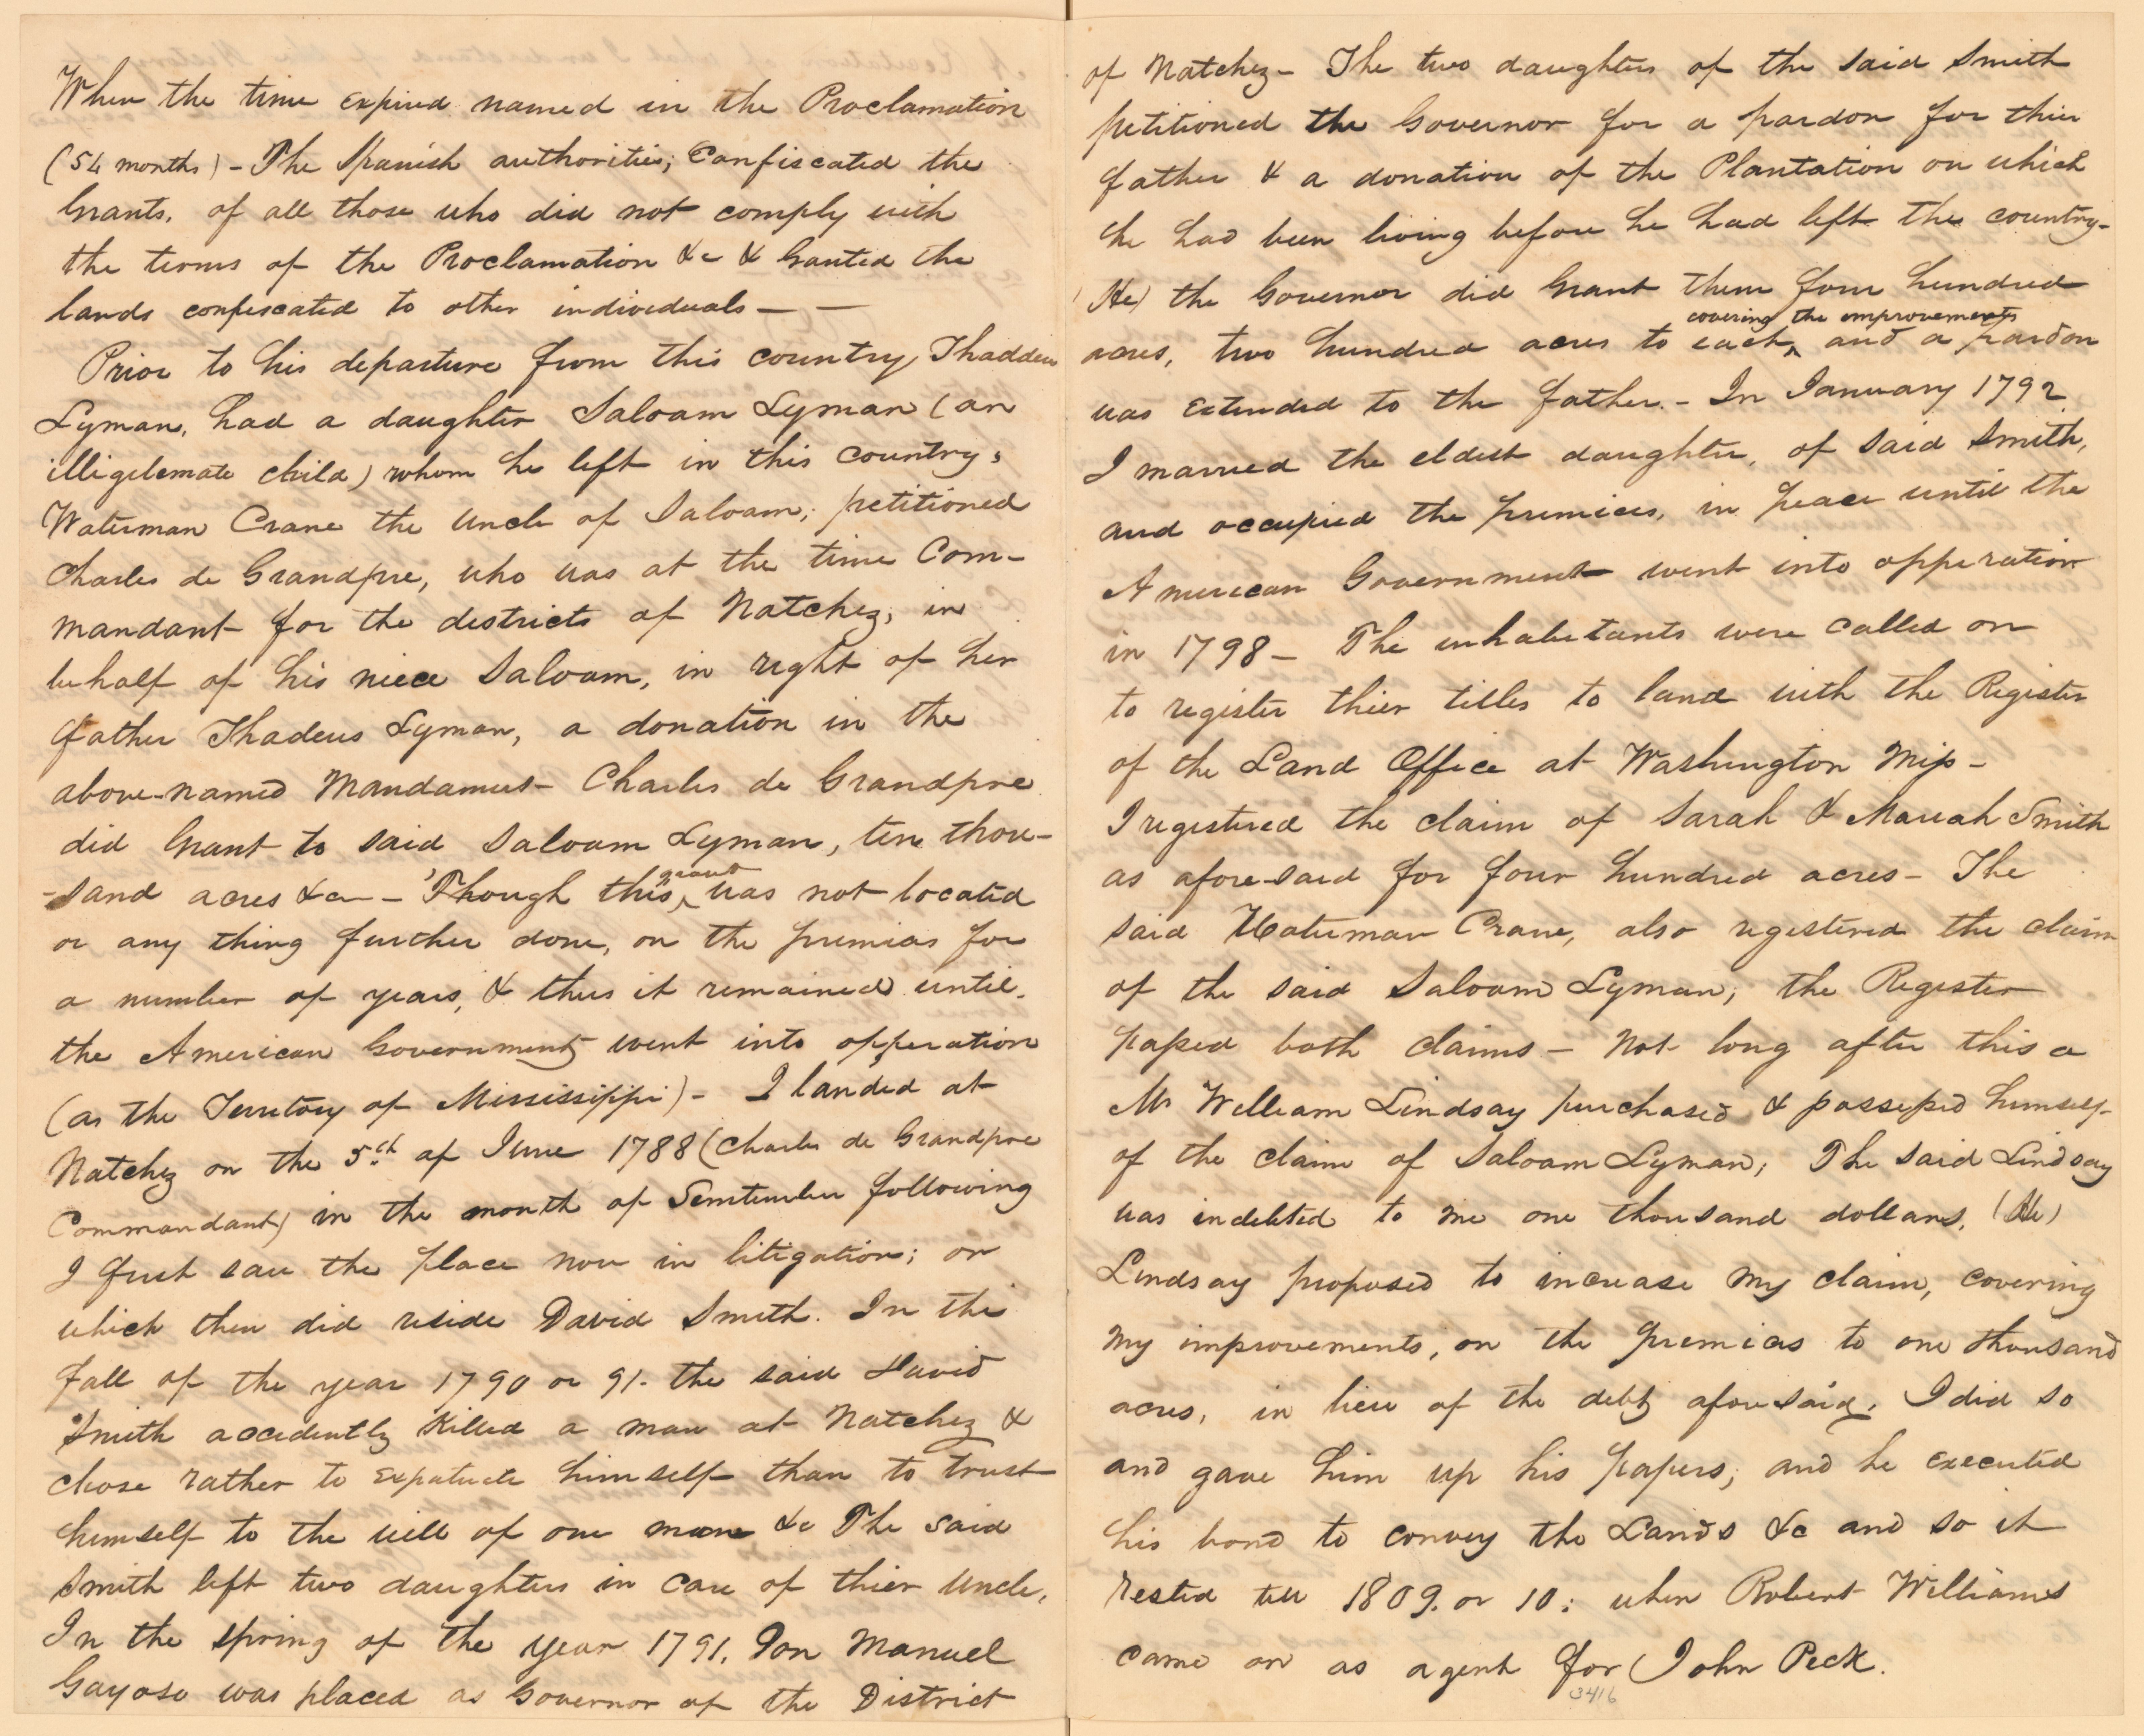 When the time expired named in the Proclamation
(54 months) - The Spanish authorities; Confiscated the
Grants, of all those who did not comply with
the terms of the Proclamation &c & Granted the
lands confiscated to other individuals — —
Prior to his departure from this country, Thaddeus
Lyman, had a daughter Saloam Lyman (an
illigitemate child) whom he left in this country,
Waterman Crane the Uncle of Saloam; petitioned
Charles de Grandpre, who was at the time Com-
mandant for the districts of Natchez, in
behalf of his niece Saloam, in right of her
father Thadeus Lyman, a donation in the
above-named Mandamus- Charles de Grandpre
did Grant to said Saloam Lyman, ten thou-
-sand acres &c — Though this grant was not located
or any thing further done, on the premises for
a number of years, & thus it remained until
the American Government went into opperation
(as the Territory of Mississippi) - I landed at
Natchez on the 5.th of June 1788 (Charles de Grandpre
Commandant) in the month of Semtember following
I first saw the place now in litigation; on
which then did reside David Smith. In the
fall of the year 1790 or 91. the said David
Smith accedently killed a man at Natchez &
chose rather to expatuate himself than to trust
himself to the will of one man &c The said
Smith left two daughters in care of thier Uncle,
In the spring of the year 1791, Don Manuel
Gayoso was placed as Governor of the District
of Natchez- The two daughters of the said Smith
petitioned the Governor for a pardon for thier
father & a donation of the Plantation on which
he had been living before he had left the country-
(He) the Governor did Grant them four hundred
covering the improvements
acres, two hundred acres to each, and a pardon
was extended to the father. - In January 1792
I married the eldest daughter, of said Smith,
and occupied the premices, in peace until the
American Government went into opperation
in 1798 — The inhabitants were called on
to register thier titles to land with the Register
of the Land Office at Washington Miss -
I registered the claim of Sarah & Mariah Smith
as afore-said for four hundred acres - The
said Waterman Crane, also registered the claim
of the said Saloam Lyman; the Register
passed both claims — Not long after this a
Mr William Lindsay purchased & possessed himself
of the claim of Saloam Lyman; The said Lindsay
was indebted to me one thousand dollars, (He)
Lindsay proposed to increase my claim, covering
my improvements, on the premices to one thousand
acres, in lieu of the debt, afore said. I did so
and gave him up his papers; and he executed
his bond to convey the Lands &c and so it
rested till 1809. or 10: when Robert Williams
came on as agent for John Peck.
3416